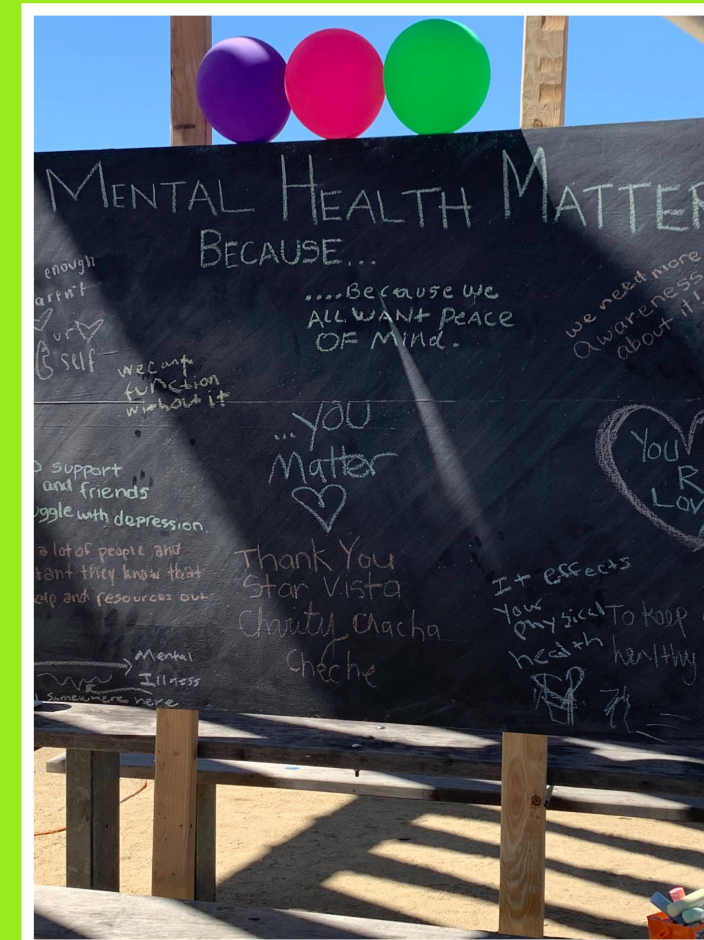 MENTAL HEALTH MATTER
BECAUSE...
enough
arent
self
we cant
function
without it
....Because we
ALL WANT PEACE
OF Mind.
we need more
awareness
about it!
...YOU
Matter
You
R
LOV
support
and friends
uggle with depression.
a lot of people and
tant they know that
elp and resources out
Thank You
Star Vista
Charity Chacha
Cheche
It effects
your
physical
health
To keep
healthy
Mental
Illness
somewhere here